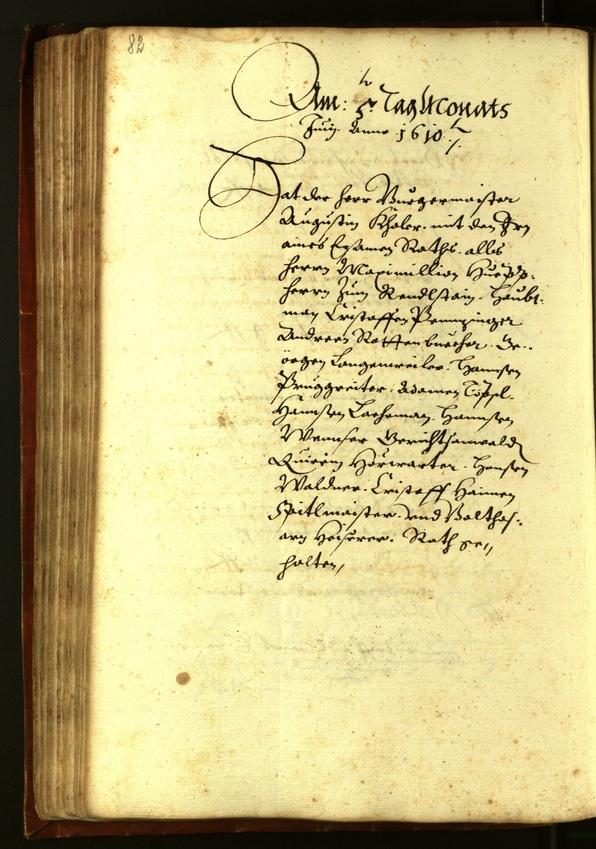 82
Am: 5 Tag Monats
Junij Anno 1610
Hat der Herr Burgermaister
Augustin Khaler mit den Hrn
aines Ersamen Raths alls
Herrn Maximillian Hueepp.
Herrn Zum Rendlstain. Haubt-
man Cristoffen Pennzinger
Andreen Rottenbuecher. Ge-
örgen Langenweiler. Hannsen
Pruggreiter. Adamen Töpsl.
Hannsen Lacheman. Hannsen
Wennser Gerichtsanwald
Quirein Hörwarter. Hansen
Waldner. Cristoff Haimen
Spitlmaister. vnd Balthas-
arn Heiserer. Rath ge-
halten